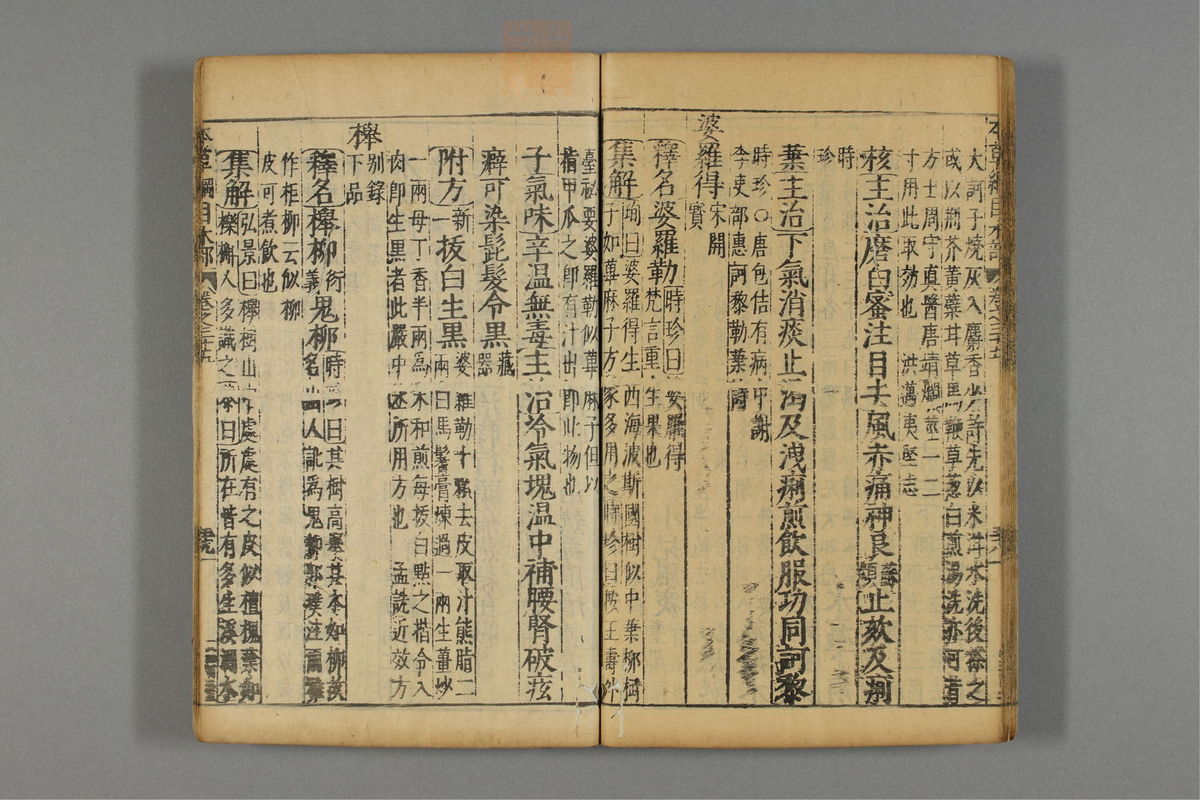 本草綱目木部 卷之三十五
大訶子燒灰入麝香少許先以米泔水洗後搽之
或以荊芥黃蘗甘草馬鞭草葱白煎湯洗亦可昔
方士周守真醫唐靖爛莖一二
寸用此取効也 洪邁夷堅志
核主治磨白蜜注目去風赤痛神良蘇頌止欬及痢
時
珍
葉主治下氣消痰止渴及洩痢煎飲服功同訶黎
時珍〇唐包佶有病中謝
李吏部惠訶黎勒葉詩
婆羅得宋開
寶
釋名婆羅勒時珍曰婆羅得
梵言重生果也
集解珣曰婆羅得生西海波斯國樹似中華柳樹
子如蓖麻子方家多用之時珍曰按王燾外
臺祕要婆羅勒似蓖麻子但以
指甲爪之即有汁出即此物也
子氣味辛溫無毒主治冷氣塊溫中補腰腎破痃
癖可染髭髮令黑藏
器
附方新一拔白生黑婆羅勒十顆去皮取汁熊脂二
兩白馬鬐膏煉過一兩生薑炒
一兩母丁香半兩爲末和煎每拔白點之揩令入
肉即生黑者此嚴中丞所用方也 孟詵近效方
櫸別錄
下品
釋名櫸柳衍義鬼柳時珍曰其樹高舉其木如柳故
名山人訛爲鬼柳郭璞注爾雅
作柜柳云似柳
皮可煮飲也
集解弘景曰櫸樹山中處處有之皮似檀槐葉如
櫟槲人多識之宗奭曰今人所在皆有多生溪澗水
本草綱目木部 卷之三十五